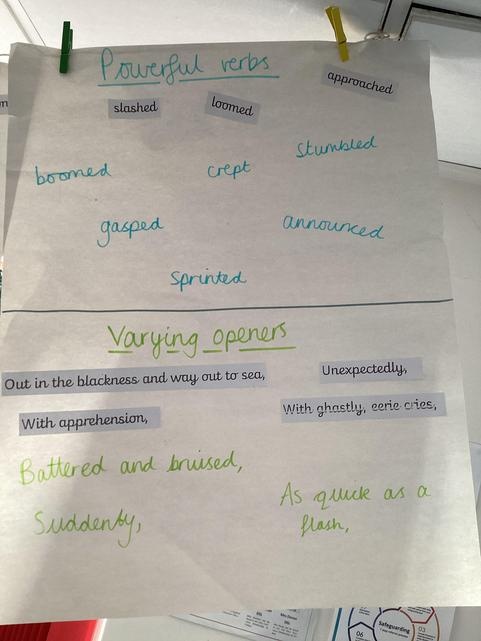 Powerful verbs
approached
slashed
loomed
stumbled
boomed
crept
gasped
announced
sprinted
Varying openers
Out in the blackness and way out to sea,
Unexpectedly,
With apprehension,
With ghastly, eerie cries,
Battered and bruised,
As quick as a
flash,
Suddenly,
Safeguarding
03
06